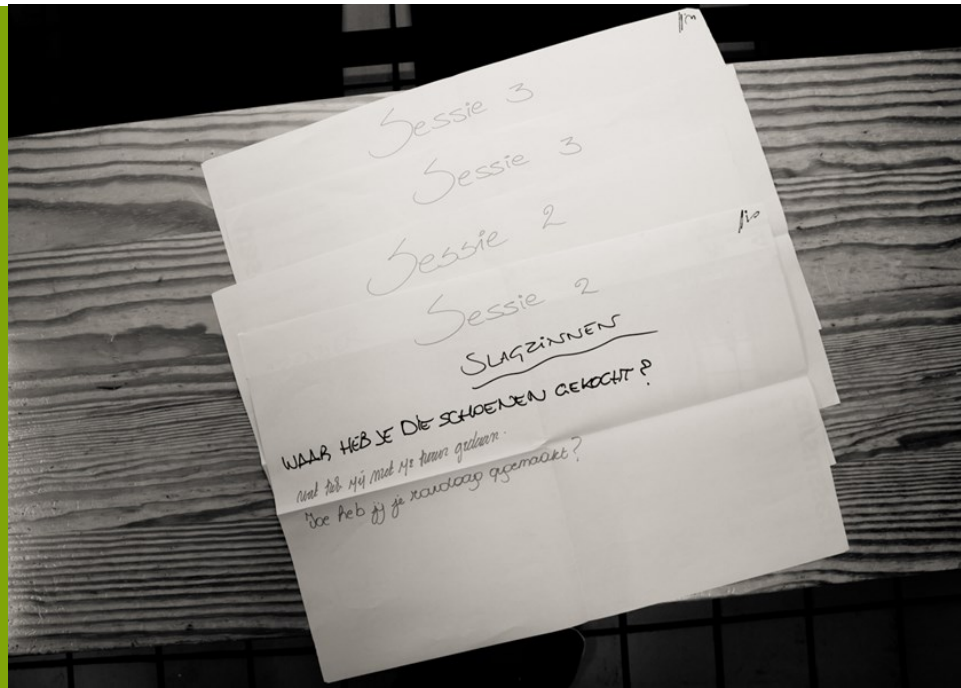 Sessie 3
Sessie 3
Sessie 2
Sessie 2
SLAGZINNEN
WAAR HEB JE DIE SCHOENEN GEKOCHT?
wat heb jij met je haar gedaan.
Hoe heb jij je vandaag opgemaakt?